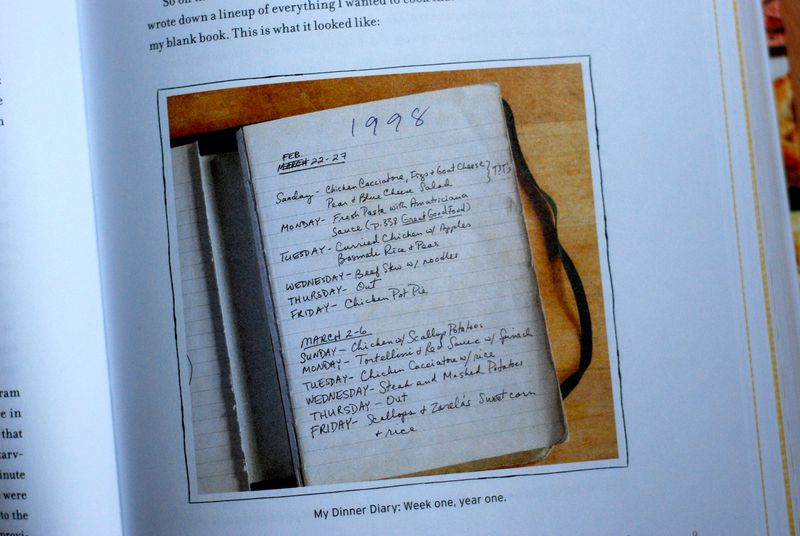 wrote down a lineup of everything I wanted to cook
my blank book. This is what it looked like:
1998
FEB.
MARCH 22-27
Sunday - Chicken Cacciatore, Figs + Goat Cheese
Pear + Blue Cheese Salad
MONDAY - Fresh Pasta with Amatriciana
Sauce (p. 338 Great Good Food)
TUESDAY - Curried Chicken w/ Apples
Basmati Rice + Peas
WEDNESDAY - Beef Stew w/ noodles
THURSDAY - Out
FRIDAY - Chicken Pot Pie
MARCH 2-6
SUNDAY - Chicken w/ Scallop Potatoes
MONDAY - Tortellini + Red Sauce w/ Spinach
TUESDAY - Chicken Cacciatore w/ rice
WEDNESDAY - Steak and Mashed Potatoes
THURSDAY - Out
FRIDAY - Scallops + Zarela's Sweet corn
+ rice
My Dinner Diary: Week one, year one.
ram
e in
that
arv-
inute
were
to the